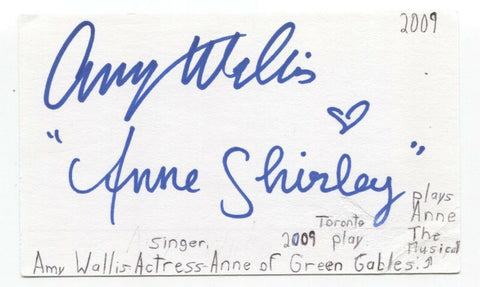 2009
Amy Wallis
"Anne Shirley"
plays
Anne
The
Musical
Toronto
singer, 2009 play
Amy Wallis-Actress-Anne of Green Gables.